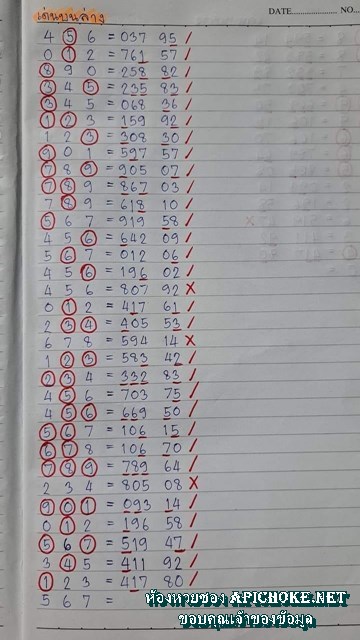 เด่นบนล่าง
DATE.................... NO...
4 5 6 = 037 95 /
0 1 2 = 761 57 /
8 9 0 = 258 82 /
3 4 5 = 235 83 /
3 4 5 = 068 36 /
1 2 3 = 159 92 /
1 2 3 = 308 30 /
9 0 1 = 597 57 /
7 8 9 = 905 07 /
7 8 9 = 867 03 /
7 8 9 = 618 10 /
5 6 7 = 919 58 /
4 5 6 = 642 09 /
5 6 7 = 012 06 /
4 5 6 = 196 02 /
4 5 6 = 807 92 X
0 1 2 = 417 61 /
2 3 4 = 405 53 /
6 7 8 = 594 14 X
1 2 3 = 583 42 /
2 3 4 = 332 83 /
4 5 6 = 703 75 /
4 5 6 = 669 50 /
5 6 7 = 106 15 /
6 7 8 = 106 70 /
7 8 9 = 789 64 /
2 3 4 = 805 08 X
9 0 1 = 093 14 /
0 1 2 = 196 58 /
5 6 7 = 519 47 /
3 4 5 = 411 92 /
1 2 3 = 417 80 /
5 6 7 =
ห้องหวยซอง APICHOKE.NET
ขอบคุณเจ้าของข้อมูล